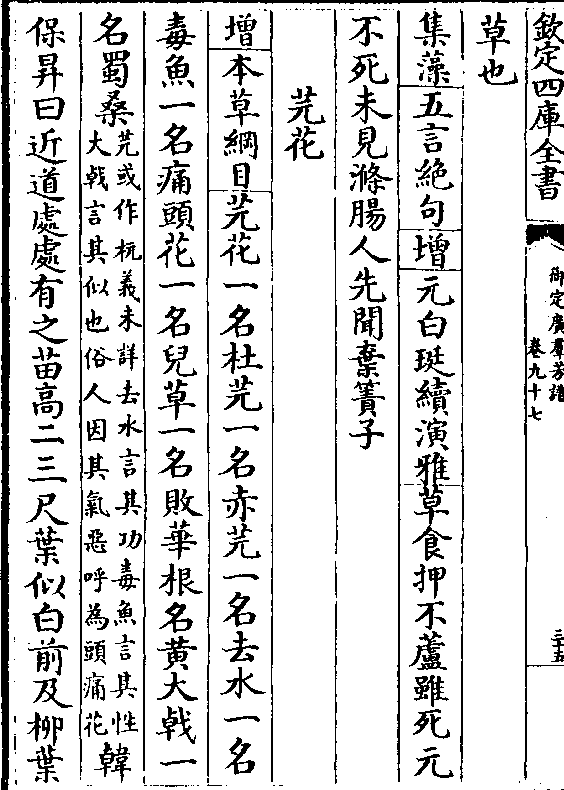 欽定四庫全書
御定廣羣芳譜
卷九十七
三十五
草也
集藻五言絶句增元白珽續演雅草食押不蘆雖死元
不死未見滌腸人先聞棄簀子
芫花
增本草綱目芫花一名杜芫一名赤芫一名去水一名
毒魚一名痛頭花一名兒草一名敗華根名黄大戟一
名蜀桑芫或作杬義未詳去水言其功毒魚言其性
大戟言其似也俗人因其氣惡呼為頭痛花韓
保昇曰近道處處有之苗高二三尺葉似白前及栁葉